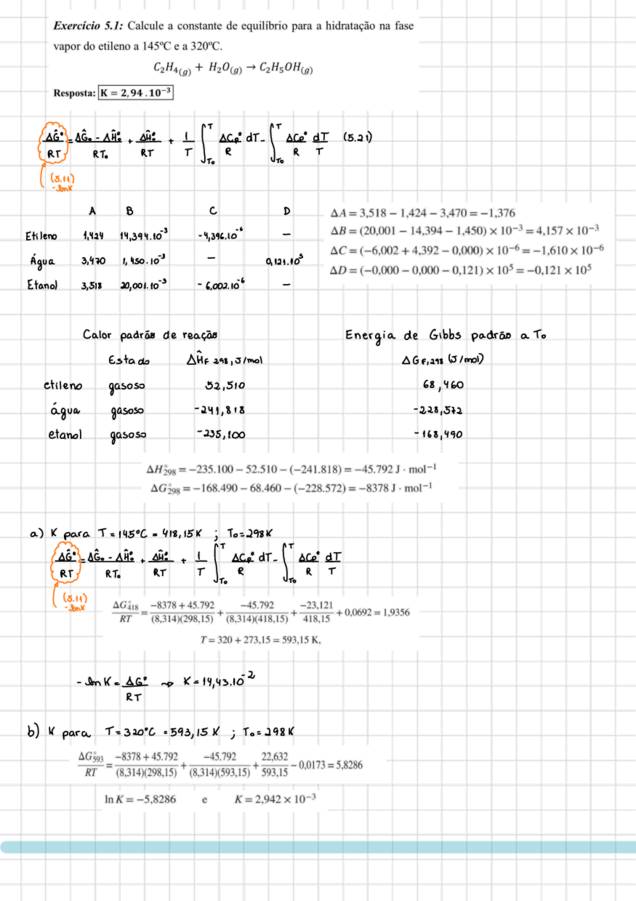 Exercício 5.1: Calcule a constante de equilíbrio para a hidratação na fase
vapor do etileno a 145ºC e a 320ºC.
C₂H₄₍g₎ + H₂O₍g₎ → C₂H₅OH₍g₎
Resposta: K = 2,94 . 10⁻³
ΔĜ°/RT = ΔĜ₀ - ΔĤ₀°/RT₀ + ΔĤ₀°/RT + 1/T ∫T₀ᵀ ΔCp°/R dT - ∫T₀ᵀ ΔCp°/R dT/T (5.21)
(5.11)
-lnK
A B C D
Etileno 1,424 14,394.10⁻³ -4,396.10⁻⁶ —
Água 3,470 1,450.10⁻³ — 0,121.10⁵
Etanol 3,518 20,001.10⁻³ -6,002.10⁻⁶ —
ΔA = 3,518 − 1,424 − 3,470 = −1,376
ΔB = (20,001 − 14,394 − 1,450) × 10⁻³ = 4,157 × 10⁻³
ΔC = (−6,002 + 4,392 − 0,000) × 10⁻⁶ = −1,610 × 10⁻⁶
ΔD = (−0,000 − 0,000 − 0,121) × 10⁵ = −0,121 × 10⁵
Calor padrão de reação Energia de Gibbs padrão a T₀
Estado ΔĤF 298, J/mol ΔGF,298 (J/mol)
etileno gasoso 52,510 68,460
água gasoso -241,818 -228,572
etanol gasoso -235,100 -168,490
ΔH°₂₉₈ = −235.100 − 52.510 − (−241.818) = −45.792 J · mol⁻¹
ΔG°₂₉₈ = −168.490 − 68.460 − (−228.572) = −8378 J · mol⁻¹
a) K para T = 145°C = 418,15K ; T₀ = 298K
ΔĜ°/RT = ΔĜ₀ - ΔĤ₀°/RT₀ + ΔĤ₀°/RT + 1/T ∫T₀ᵀ ΔCp°/R dT - ∫T₀ᵀ ΔCp°/R dT/T
(5.11)
-lnK
ΔG°₄₁₈/RT = −8378 + 45.792/(8,314)(298,15) + −45.792/(8,314)(418,15) + −23,121/418,15 + 0,0692 = 1,9356
T = 320 + 273,15 = 593,15 K,
-lnK = ΔG°/RT → K = 14,43.10⁻²
b) K para T = 320°C = 593,15 K ; T₀ = 298K
ΔG°₅₉₃/RT = −8378 + 45.792/(8,314)(298,15) + −45.792/(8,314)(593,15) + 22,632/593,15 − 0,0173 = 5,8286
ln K = −5,8286 e K = 2,942 × 10⁻³